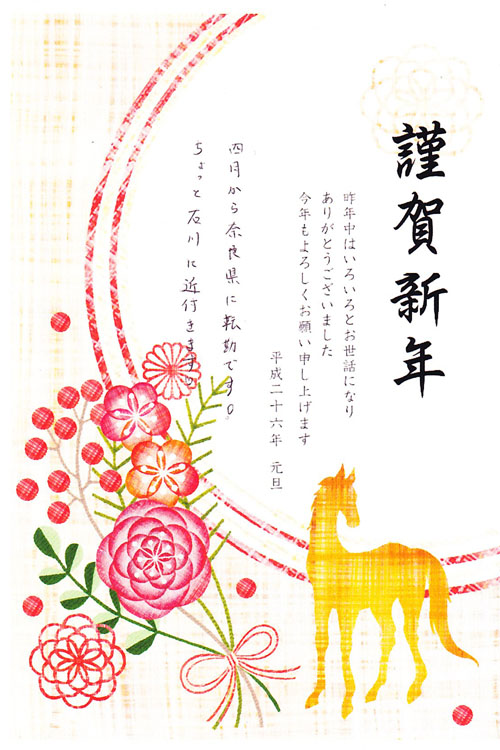 謹賀新年
昨年中はいろいろとお世話になり
ありがとうございました
今年もよろしくお願い申し上げます
平成二十六年 元旦
四月から奈良県に転勤です。
ちょっと石川に近付きます。